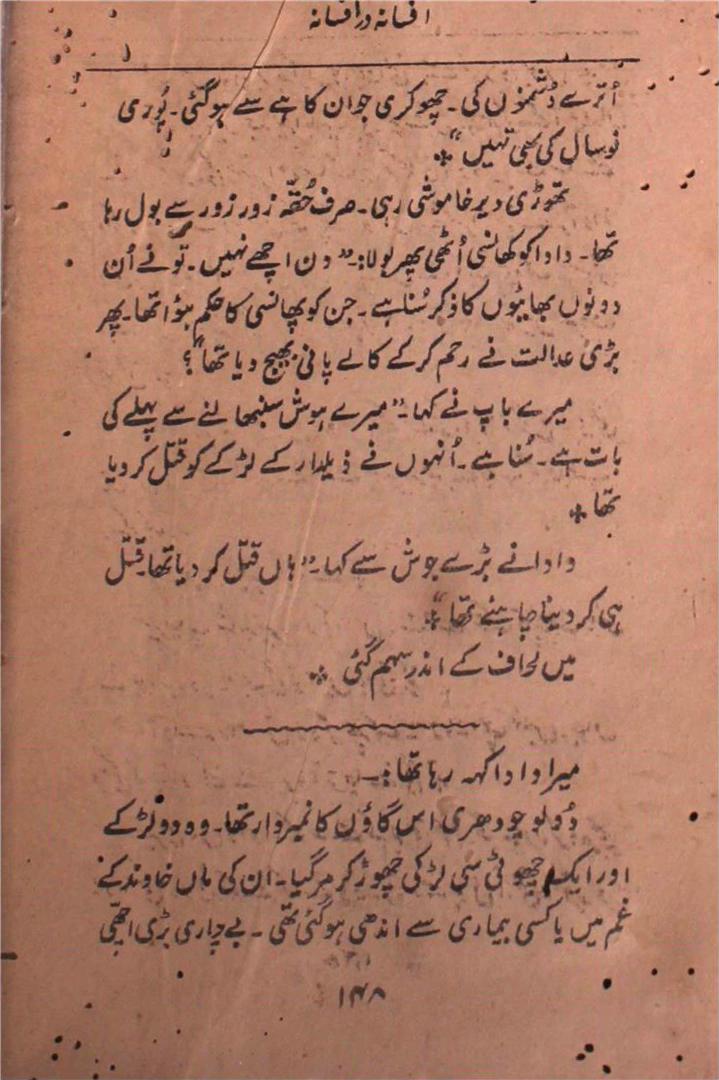 افسانہ در افسانہ
اُترے دُشمنوں کی۔ چھوکری جوان کاہے سے ہوگئی۔ پُوری
نو سال کی بھی نہیں“ ٭
تھوڑی دیر خاموشی رہی۔ صرف حُقّہ زور زور سے بول رہا
تھا۔ دادا کو کھانسی اُٹھی پھر بولا:۔ ”دن اچھے نہیں۔ تُو نے اُن
دونوں بھائیوں کا ذکر سُنا ہے۔ جن کو پھانسی کا حکم ہؤا تھا۔ پھر
بڑی عدالت نے رحم کر کے کالے پانی بھیج دیا تھا“؟
میرے باپ نے کہا۔ ”میرے ہوش سنبھالنے سے پہلے کی
بات ہے۔ سُنا ہے۔ اُنہوں نے ذیلدار کے لڑکے کو قتل کر دیا
تھا ٭
دادا نے بڑے جوش سے کہا۔ ”ہاں قتل کر دیا تھا۔ قتل
ہی کر دینا چاہئے تھا“ ٭
میں لحاف کے اندر سہم گئی ٭
میرا دادا کہہ رہا تھا:۔
دُولو چودھری اس گاؤں کا نمبردار تھا۔ وہ دو لڑکے
اور ایک چھوٹی سی لڑکی چھوڑ کر مر گیا۔ ان کی ماں خاوند کے
غم میں یا کسی بیماری سے اندھی ہوگئی تھی۔ بے چاری بڑی اچھّی
۱۴۸